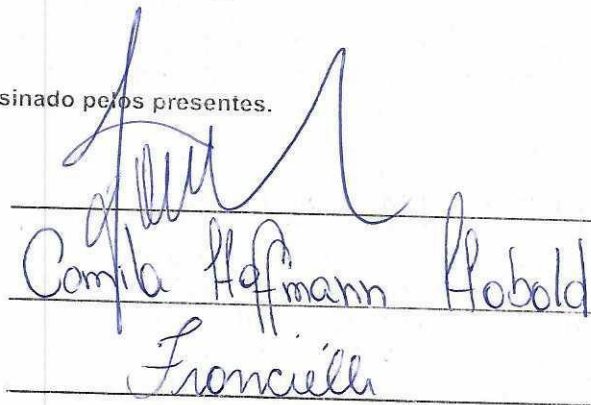 sinado pelos presentes.
Camila Hoffmann Hobold
Francielli